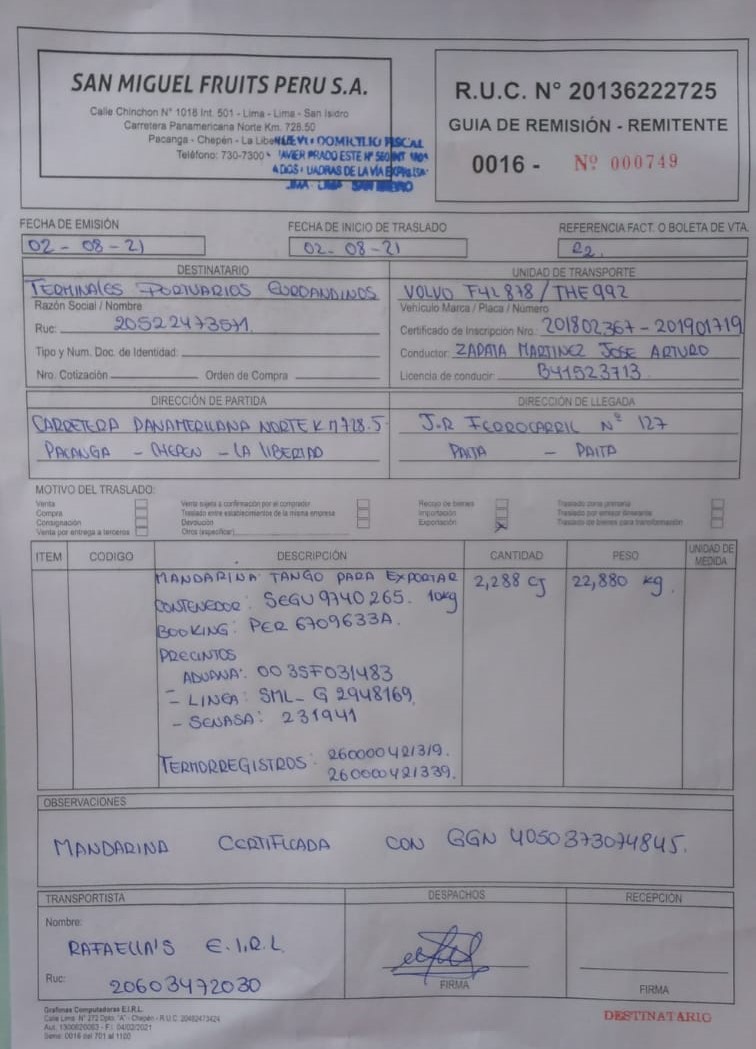 SAN MIGUEL FRUITS PERU S.A.
Calle Chinchon N° 1018 Int. 501 - Lima - Lima - San Isidro
Carretera Panamericana Norte Km. 728.50
Pacanga - Chepén - La
Teléfono: 730-7300
DOMICILIO FISCAL
JAVIER PRADO ESTE Nº 560 INT
DE LA VÍA EXPRESA
LIMA - LIMA SAN ISIDRO
R.U.C. N° 20136222725
GUIA DE REMISIÓN - REMITENTE
0016 - Nº 000749
FECHA DE EMISIÓN
02 - 08 - 21
FECHA DE INICIO DE TRASLADO
02 - 08 - 21
REFERENCIA FACT. O BOLETA DE VTA.
DESTINATARIO
TERMINALES PORTUARIOS EUROANDINOS
Razón Social / Nombre
Ruc: 20522473571.
Tipo y Num. Doc. de Identidad:
Nro. Cotización Orden de Compra
UNIDAD DE TRANSPORTE
VOLVO F4L878 / THE992
Vehículo Marca / Placa / Número
Certificado de Inscripción Nro.: 201802367 - 201901719
Conductor: ZAPATA MARTINEZ JOSE ARTURO
Licencia de conducir: B41523713
DIRECCIÓN DE PARTIDA
CARRETERA PANAMERICANA NORTE KM 728.5
PACANGA - CHEPEN - LA LIBERTAD
DIRECCIÓN DE LLEGADA
J.R FERROCARRIL Nº 127
PAITA - PAITA
MOTIVO DEL TRASLADO:
Venta
Compra
Consignación
Venta por entrega a terceros
Venta sujeta a confirmación por el comprador
Traslado entre establecimientos de la misma empresa
Devolución
Otros (especificar)
Recojo de bienes
Importación
Exportación
Traslado zona primaria
Traslado por emisor itinerante
Traslado de bienes para transformación
ITEM CODIGO DESCRIPCIÓN CANTIDAD PESO UNIDAD DE MEDIDA
MANDARINA TANGO PARA EXPORTAR 2,288 CJ 22,880 kg.
CONTENEDOR: SEGU 9740265. 10kg
BOOKING: PER 6709633A.
PRECINTOS
ADUANA: 0035F031483
- LINEA: SML- G 2948169,
- SENASA: 231941
TERMORREGISTROS: 260000421319.
260000421339.
OBSERVACIONES
MANDARINA CERTIFICADA CON GGN 4050373074845.
TRANSPORTISTA
Nombre:
RAFAELLA'S E.I.R.L
Ruc: 20603472030
DESPACHOS
FIRMA
RECEPCIÓN
FIRMA
Grafimas Computadoras E.I.R.L.
Calle Lima N° 272 Dpto. "A" - Chepén - R.U.C. 20482473424
Aut. 1300820063 - F.I. 04/02/2021
Serie: 0016 del 701 al 1100
DESTINATARIO